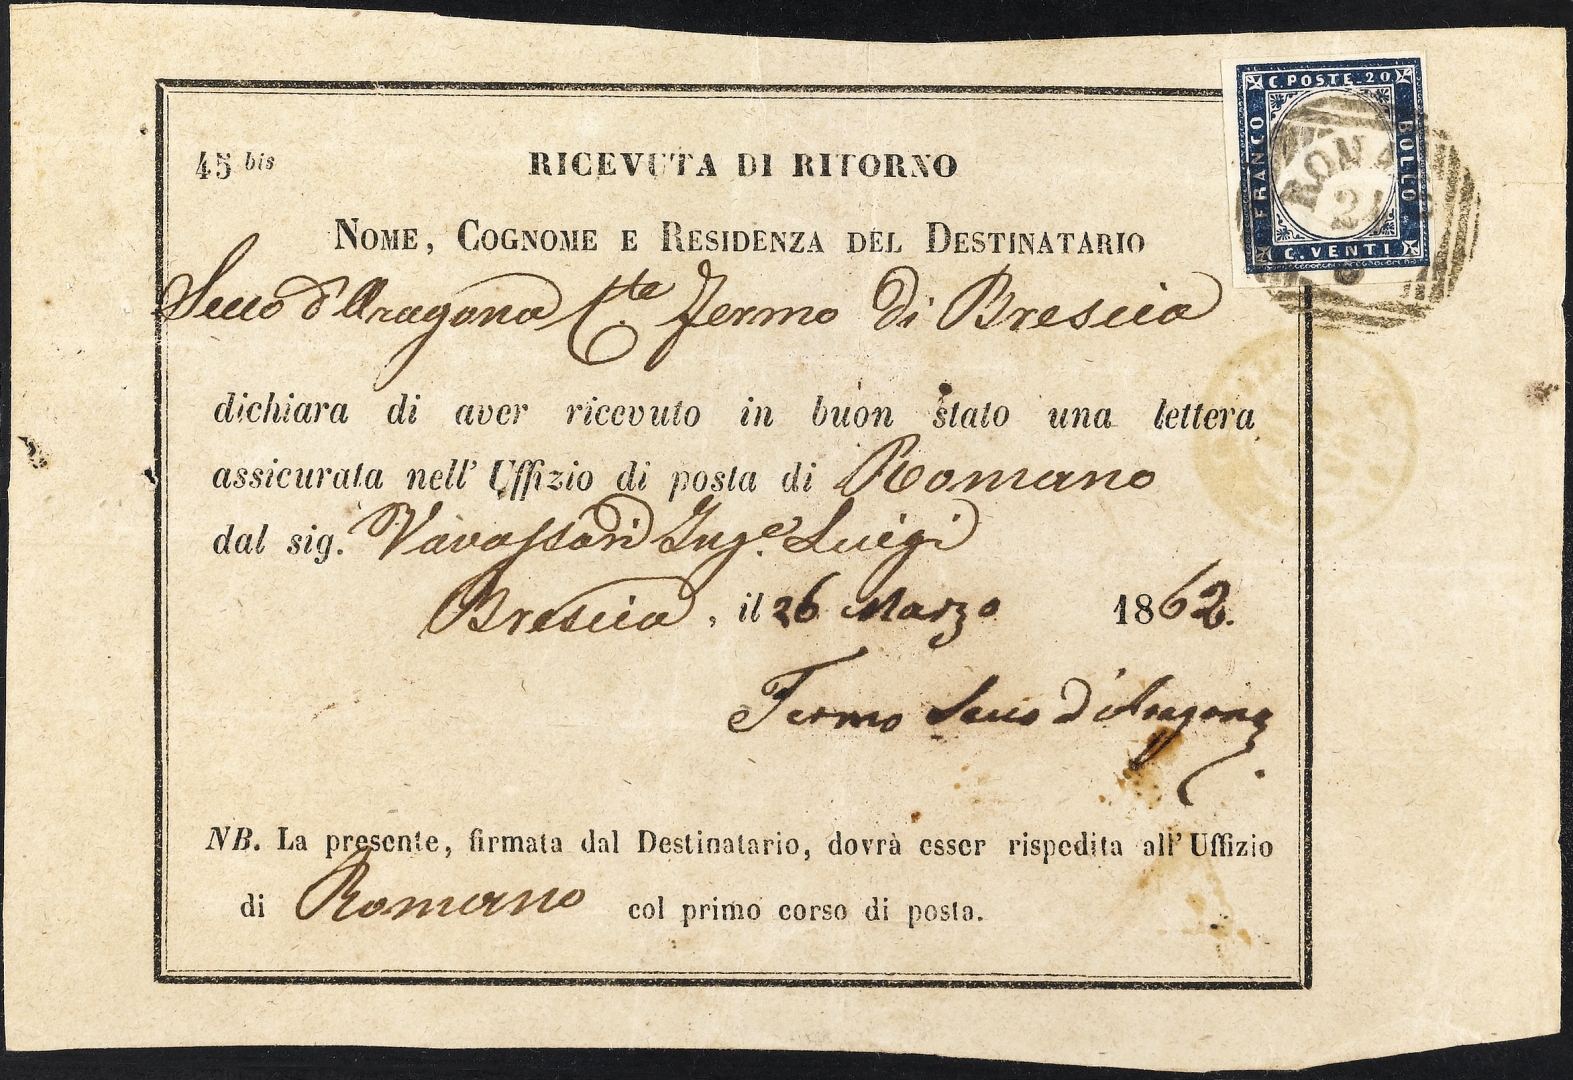 C. POSTE. 20
FRANCO
BOLLO
C. VENTI
45 bis
RICEVUTA DI RITORNO
NOME, COGNOME E RESIDENZA DEL DESTINATARIO
Secco d'Aragona C.te Fermo di Brescia
dichiara di aver ricevuto in buon stato una lettera
assicurata nell' Uffizio di posta di Romano
dal sig. Vavassori Ing.e Luigi
Brescia, il 26 Marzo 1862.
Fermo Secco d'Aragona
NB. La presente, firmata dal Destinatario, dovrà esser rispedita all' Uffizio
di Romano col primo corso di posta.